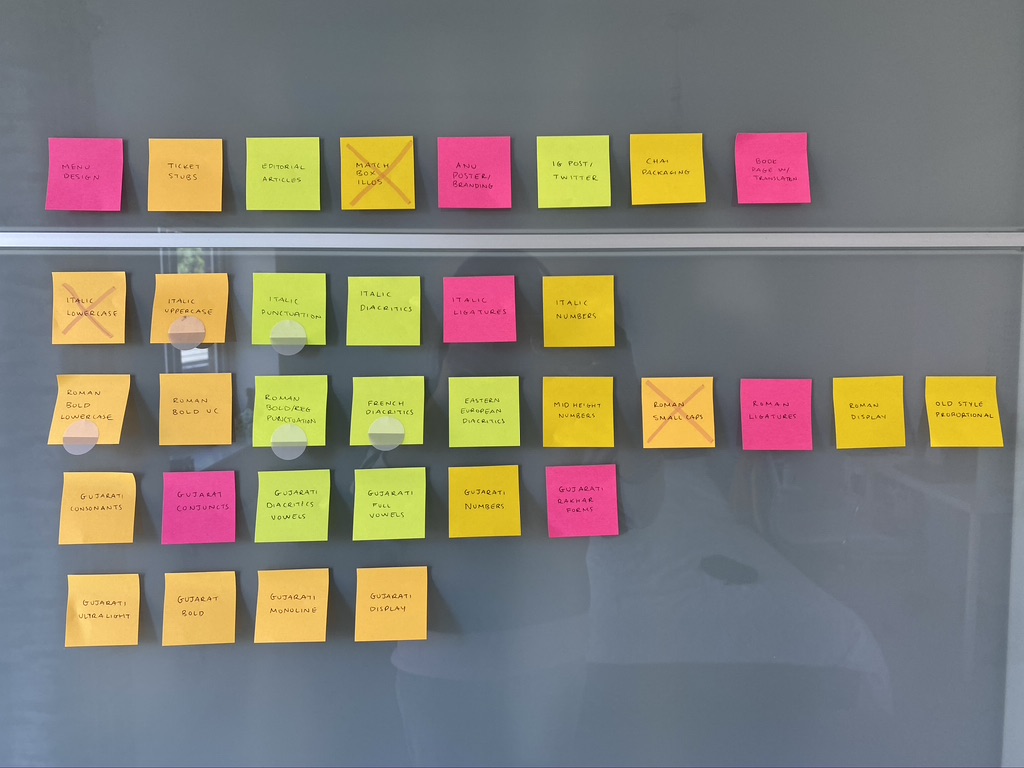 MENU
DESIGN
TICKET
STUBS
EDITORIAL
ARTICLES
MATCH
BOX
ILLUS
ANU
POSTER/
BRANDING
IG POST/
TWITTER
CHAI
PACKAGING
BOOK
PAGE W/
TRANSLATION
ITALIC
LOWERCASE
ITALIC
UPPERCASE
ITALIC
PUNCTUATION
ITALIC
DIACRITICS
ITALIC
LIGATURES
ITALIC
NUMBERS
ROMAN
BOLD
LOWERCASE
ROMAN
BOLD UC
ROMAN
BOLD/REG
PUNCTUATION
FRENCH
DIACRITICS
EASTERN
EUROPEAN
DIACRITICS
MID HEIGHT
NUMBERS
ROMAN
SMALL CAPS
ROMAN
LIGATURES
ROMAN
DISPLAY
OLD STYLE
PROPORTIONAL
GUJARATI
CONSONANTS
GUJARATI
CONJUNCTS
GUJARATI
DIACRITICS
VOWELS
GUJARATI
FULL
VOWELS
GUJARATI
NUMBERS
GUJARATI
RAKHAR
FORMS
GUJARATI
ULTRALIGHT
GUJARATI
BOLD
GUJARATI
MONOLINE
GUJARATI
DISPLAY